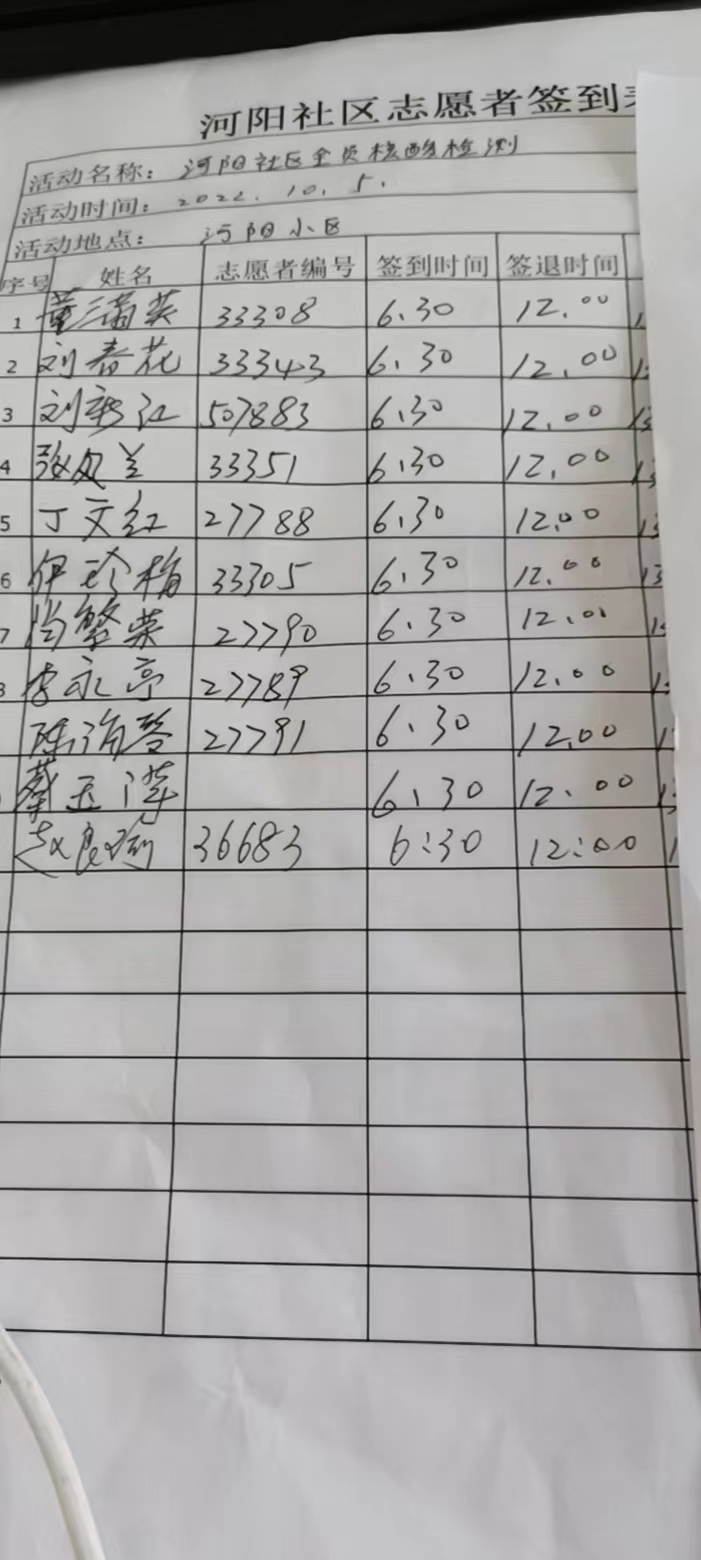 河阳社区志愿者签到
活动名称：河阳社区全员核酸检测
活动时间：2022.10.5.
活动地点：河阳小区
序号 姓名 志愿者编号 签到时间 签退时间
1 董三菊英 33308 6.30 12.00
2 刘春花 33343 6.30 12.00
3 刘 江 507883 6.30 12.00
4 张 兰 33351 6.30 12.00
5 丁文红 27788 6.30 12.00
6 伊珍梅 33305 6.30 12.00
7 尚繁荣 27790 6.30 12.00
李永亭 27789 6.30 12.00
陈 27791 6.30 12.00
蔡玉萍 6.30 12.00
赵良 36683 6:30 12:00